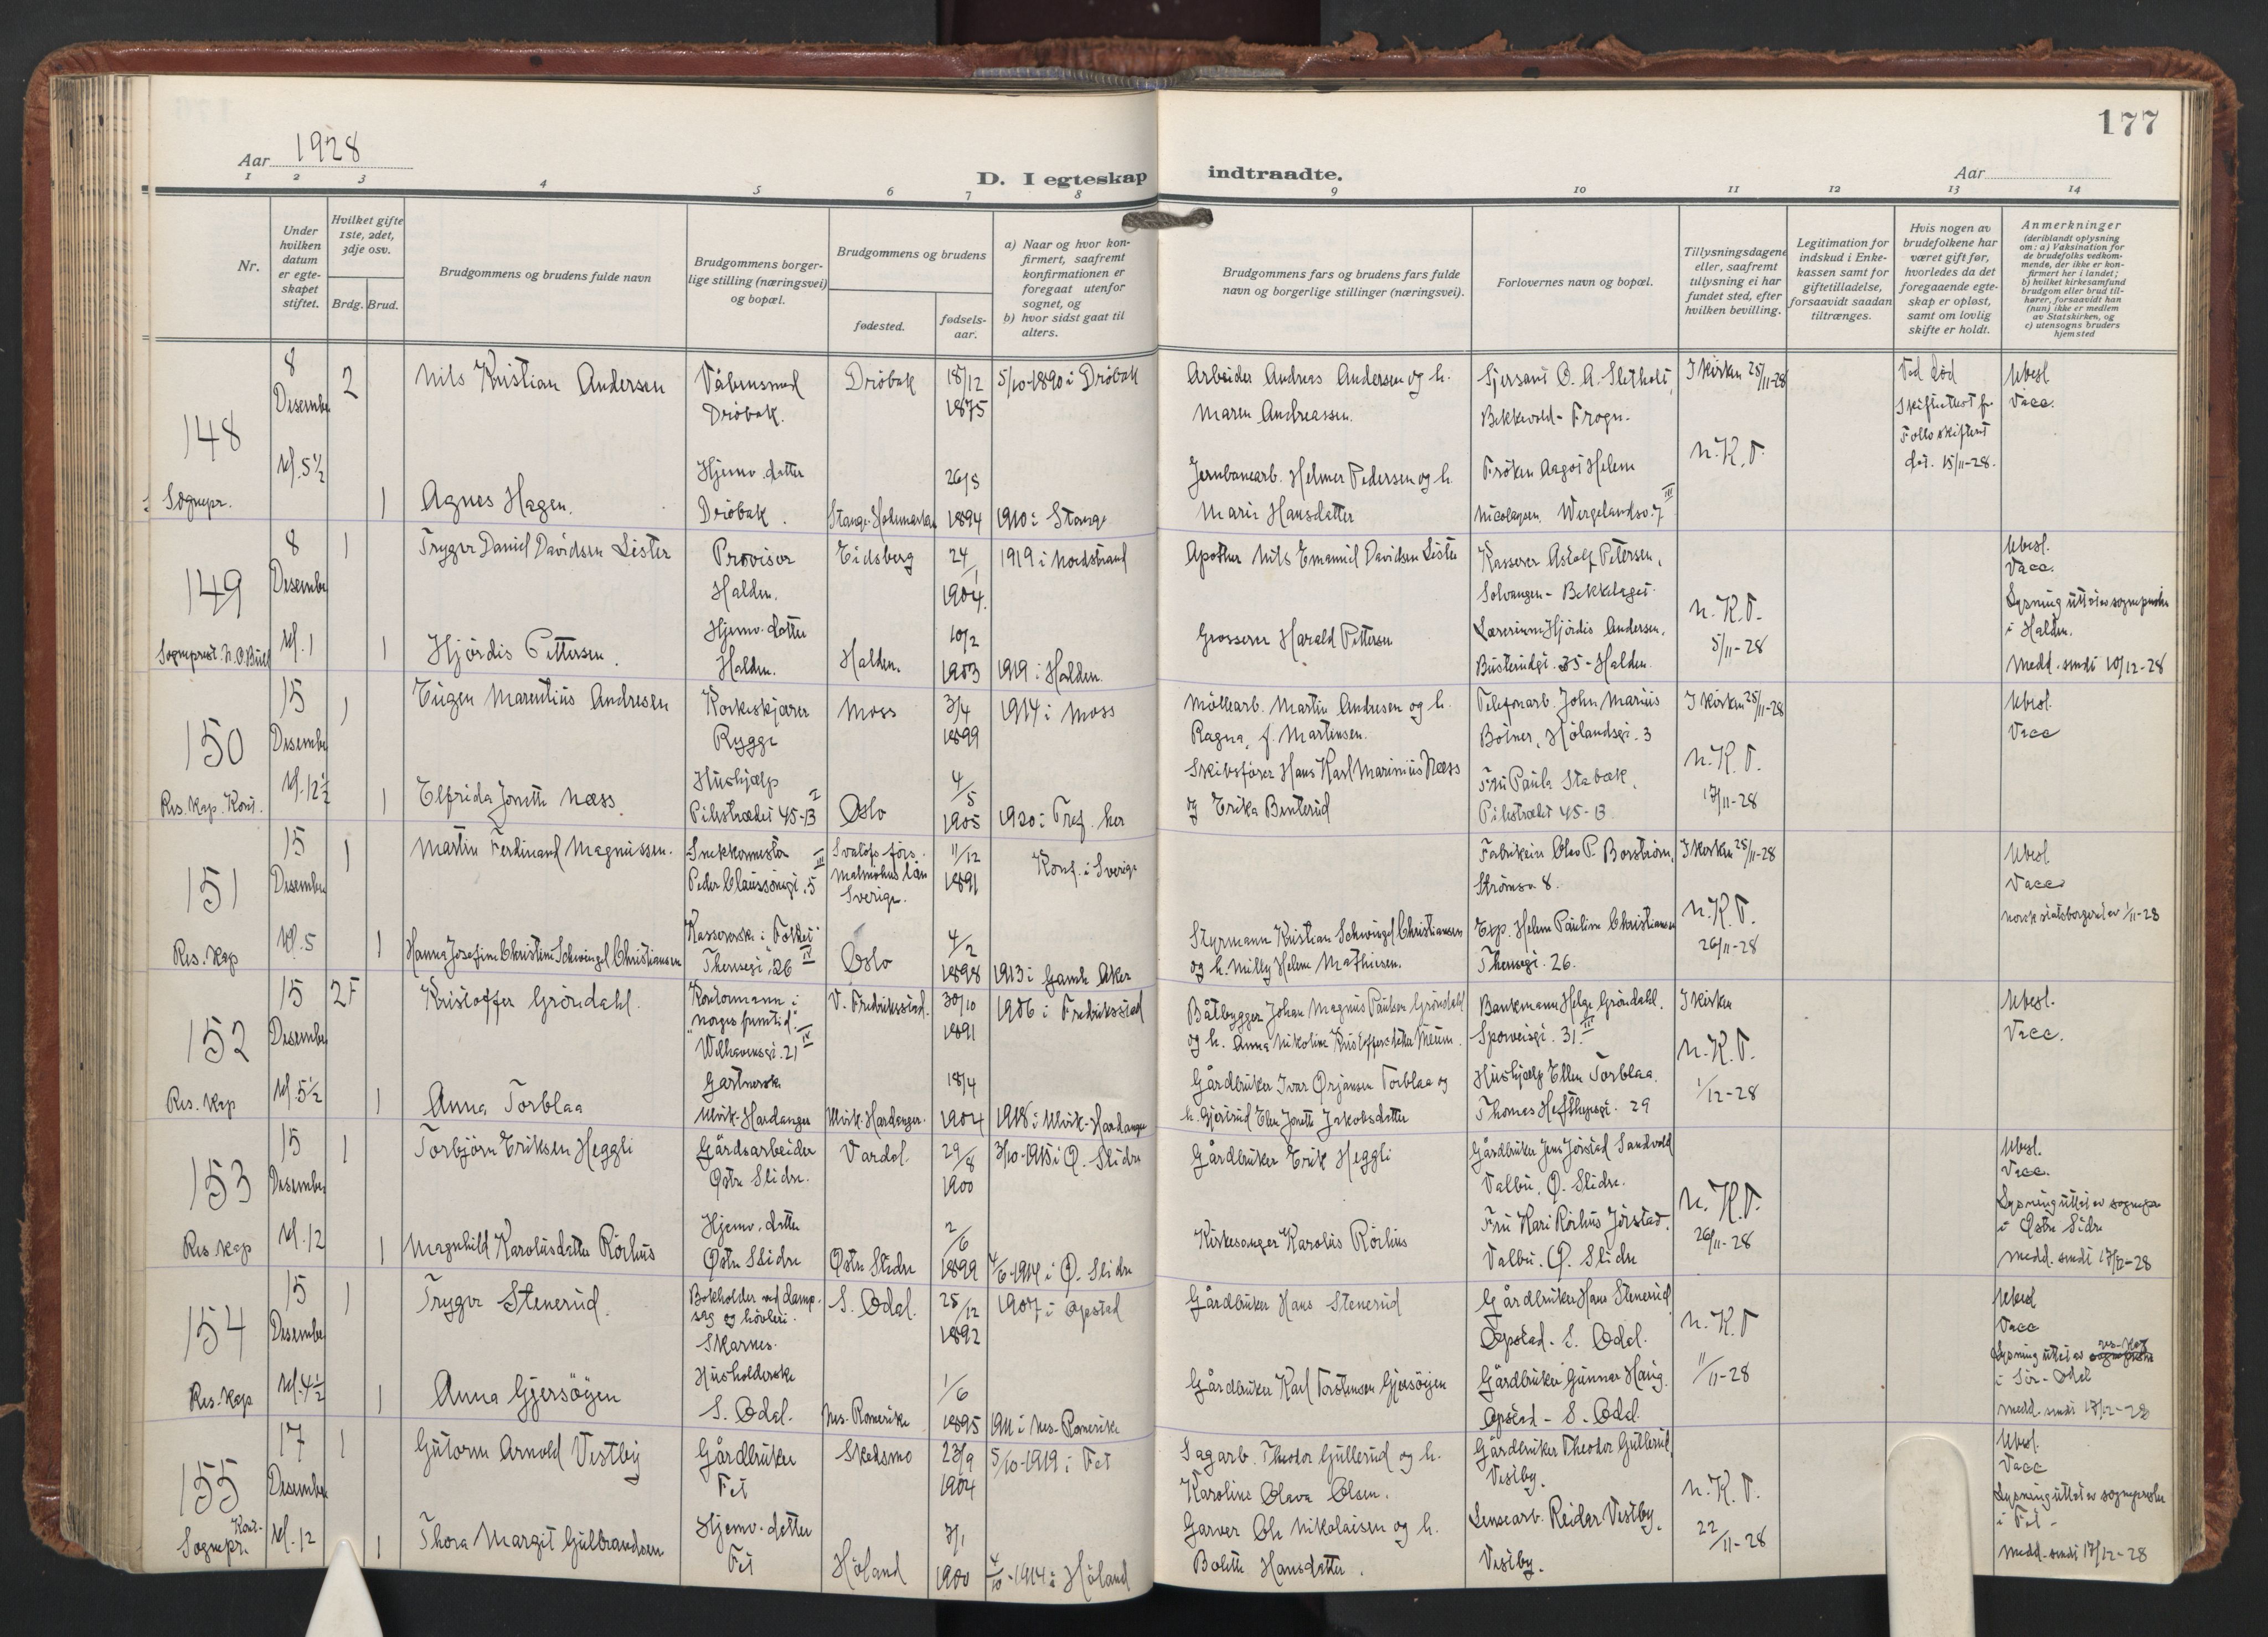 177
Aar 1928
D. I egteskap indtraadte.
Aar
1 2 3 4 5 6 7 8 9 10 11 12 13 14
Nr.
Under hvilken datum er egteskapet stiftet.
Hvilket gifte 1ste, 2det, 3dje osv.
Brdg. Brud.
Brudgommens og brudens fulde navn
Brudgommens borgerlige stilling (næringsvei) og bopæl.
Brudgommens og brudens
fødested.
fødselsaar.
a) Naar og hvor konfirmert, saafremt konfirmationen er foregaat utenfor sognet, og
b) hvor sidst gaat til alters.
Brudgommens fars og brudens fars fulde navn og borgerlige stillinger (næringsvei).
Forlovernes navn og bopæl.
Tillysningsdagene eller, saafremt tillysning ei har fundet sted, efter hvilken bevilling.
Legitimation for indskud i Enkekassen samt for giftetilladelse, forsaavidt saadan tiltrænges.
Hvis nogen av brudefolkene har været gift før, hvorledes da det foregaaende egteskap er opløst, samt om lovlig skifte er holdt.
Anmerkninger (deriblandt oplysning om: a) Vaksination for de brudefolks vedkommende, der ikke er konfirmert her i landet; b) hvilket kirkesamfund brudgom eller brud tilhører, forsaavidt han (hun) ikke er medlem av Statskirken, og c) utensogns bruders hjemsted
148
8 Desember
kl. 5½
Sognepr.
2
Nils Kristian Andersen
Våbensmed
Dröbak.
Dröbak
18/12
1875
5/10-1890 i Dröbak
Arbeider Andreas Andersen og h.
Maren Andreassen.
Bekkevold - Frogn.
I kirken 25/11-28
N.K.T.
Ved död
Skifteattest fr
Follo skifterett
dat. 15/11-28.
Ubesl
Vacc.
1
Agnes Hagen.
Hjemv. datter
Dröbak.
Stange Hedemarken
26/5
1894
1910 i Stange
Jernbanearb. Helmer Pedersen og h.
Marie Hansdatter
Fröken Aagot Helene
Nicolaysen. Wergelandsv. 7 III
149
8 Desember
kl. 1
Sogneprest N.O. Buch
1
Trygve Daniel Davidsen Lister
Provisor
Halden.
Eidsberg
24/1
1904.
1919 i Nordstrand
Apotheker Nils Emanuel Davidsen Lister
Kasserer Astolf Petersen,
Solvangen - Bekkelaget.
N.K.T.
5/11-28
Ubesl.
Vacc.
Lysning utført av sogneprester
i Halden.
Medd. sendt 10/12-28
1
Hjördis Pettersen.
Hjemv. datter
Halden.
Halden.
10/2
1903
1919 i Halden.
Grosserer Harald Pettersen
Lærerinne Hjördis Andersen,
Busterudgt. 35 - Halden.
150
15 Desember
kl. 12½
Res. Kap. Kont.
1
Eugen Marentius Andresen
Korkeskjærer
Rygge
Moss
3/4
1899
1914 i Moss
Möllearb. Martin Andresen og h.
Ragna, f. Martinsen.
Telefonarb. John Marius
Bölner, Hölandsgt. 3
I kirken 25/11-28
N.K.T.
17/11-28
Ubesl.
Vacc
1
Elfrida Jonette Næss
Hushjælp
Pilestrædet 45-B I
Oslo
4/5
1905
1920 i Tref. her
Skibsfører Hans Karl Marinius Næss
og Erika Benterud
Fru Paula Stabæk,
Pilestrædet 45-B
151
15 Desember
kl. 5
Res. Kap
1
Martin Ferdinand Magnussen.
Snekkermester
Peder Claussönsgt. 5 III
Svalöfs förs.
Malmöhus län
Sverige.
11/12
1891
Konf. i Sverige
Fabrikeier Olav P. Borström,
Strömsv. 8.
I kirken 25/11-28
N.K.T.
26/11-28
Ubesl.
Vacc
norsk statsborgerd av 1/11-28
1
Hanna Josefine Christine Schwingel Christiansen
Kassererske i Folket
Theresegt. 26 IV
Oslo
4/2
1898
1913 i Gamle Aker
Styrmann Kristian Schwingel Christiansen
og h. Milly Helene Mathiesen.
Exp. Helene Pauline Christiansen
Theresegt. 26.
152
15 Desember
kl. 5½
Res. Kap
2F
Kristoffer Gröndahl.
Kontormann i
"Norges fremtid".
Welhavensgt. 21 IV
V. Fredrikstad.
30/10
1891
1906 i Fredriksstad
Båtbygger Johan Magnus Paulsen Gröndahl
og h. Anna Nikoline Kristoffersdatter Meum.
Bankmann Helge Gröndahl.
Sporveisgt. 31 III
I kirken
N.K.T.
1/12-28
Ubesl.
Vacc.
1
Anna Torblaa
Gartnerske
Ulvik-Hardanger
Ulvik-Hardanger.
18/4
1904
1918 i Ulvik-Hardanger
Gårdbruker Ivar Ørjansen Torblaa og
h. Gjertrud Elen Jonette Jakobsdatter
Hushjælp Ellen Torblaa.
Thomas Heftyesgt. 29
153
15 Desember
kl. 12
Res. Kap
1
Torbjörn Eriksen Heggli
Gårdsarbeider
Østre Slidre.
Vardal.
29/8
1900
3/10-1915 i Ø. Slidre
Gårdbruker Erik Heggli
Gårdbruker Jens Jörstad Sandvold
Valbu, Ø. Slidre.
N.K.T.
26/11-28
Ubesl.
Vacc.
Lysning utført av sognepr
i Østre Slidre
Medd. sendt 17/12-28
1
Magnhild Karolusdatter Röihus
Hjemv. datter
Østre Slidre
Østre Slidre
2/6
1899
4/6-1914 i Ø. Slidre
Kirkesanger Karolus Röihus
Fru Kari Röihus Jörstad.
Valbu. Ø. Slidre
154
15 Desember
kl. 4½
Res. Kap
1
Trygve Stenerud.
Bokholder ved damp.
sag og hövleri.
Skarnes.
S. Odal.
25/12
1892
1907 i Opstad
Gårdbruker Hans Stenerud
Gårdbruker Hans Stenerud
Opstad - S. Odal.
N.K.T
11/11-28
Ubesl
Vacc
Lysning utført av res. Kap
i Sör-Odal
Medd. sendt 17/12-28
1
Anna Gjersöyen
Husholderske
S. Odal.
Nes-Romerike
1/6
1895
1911 i Nes-Romerike
Gårdbruker Karl Torstensen Gjersöyen
Gårdbruker Gunnar Haug.
Opstad - S. Odal
155
17 Desember
kl. 12
Kont. Sognepr.
1
Gutorm Arnold Vestby
Gårdbruker
Fet
Skedsmo
23/9
1904
5/10-1919 i Fet
Sagarb. Theodor Gullerud og h.
Karoline Olava Olsen.
Gårdbruker Theodor Gullerud
Vestby.
N.K.T.
22/11-28
Ubesl.
Vacc
Lysning utført av sogneprester
i Fet.
Medd. sendt 17/12-28
1
Thora Margit Gulbrandsen
Hjemv. datter
Fet
Höland
7/1
1900
4/10-1914 i Höland
Garver Ole Nikolaisen og h.
Bolette Hansdatter.
Lensearb. Reidar Vestby.
Vestby.